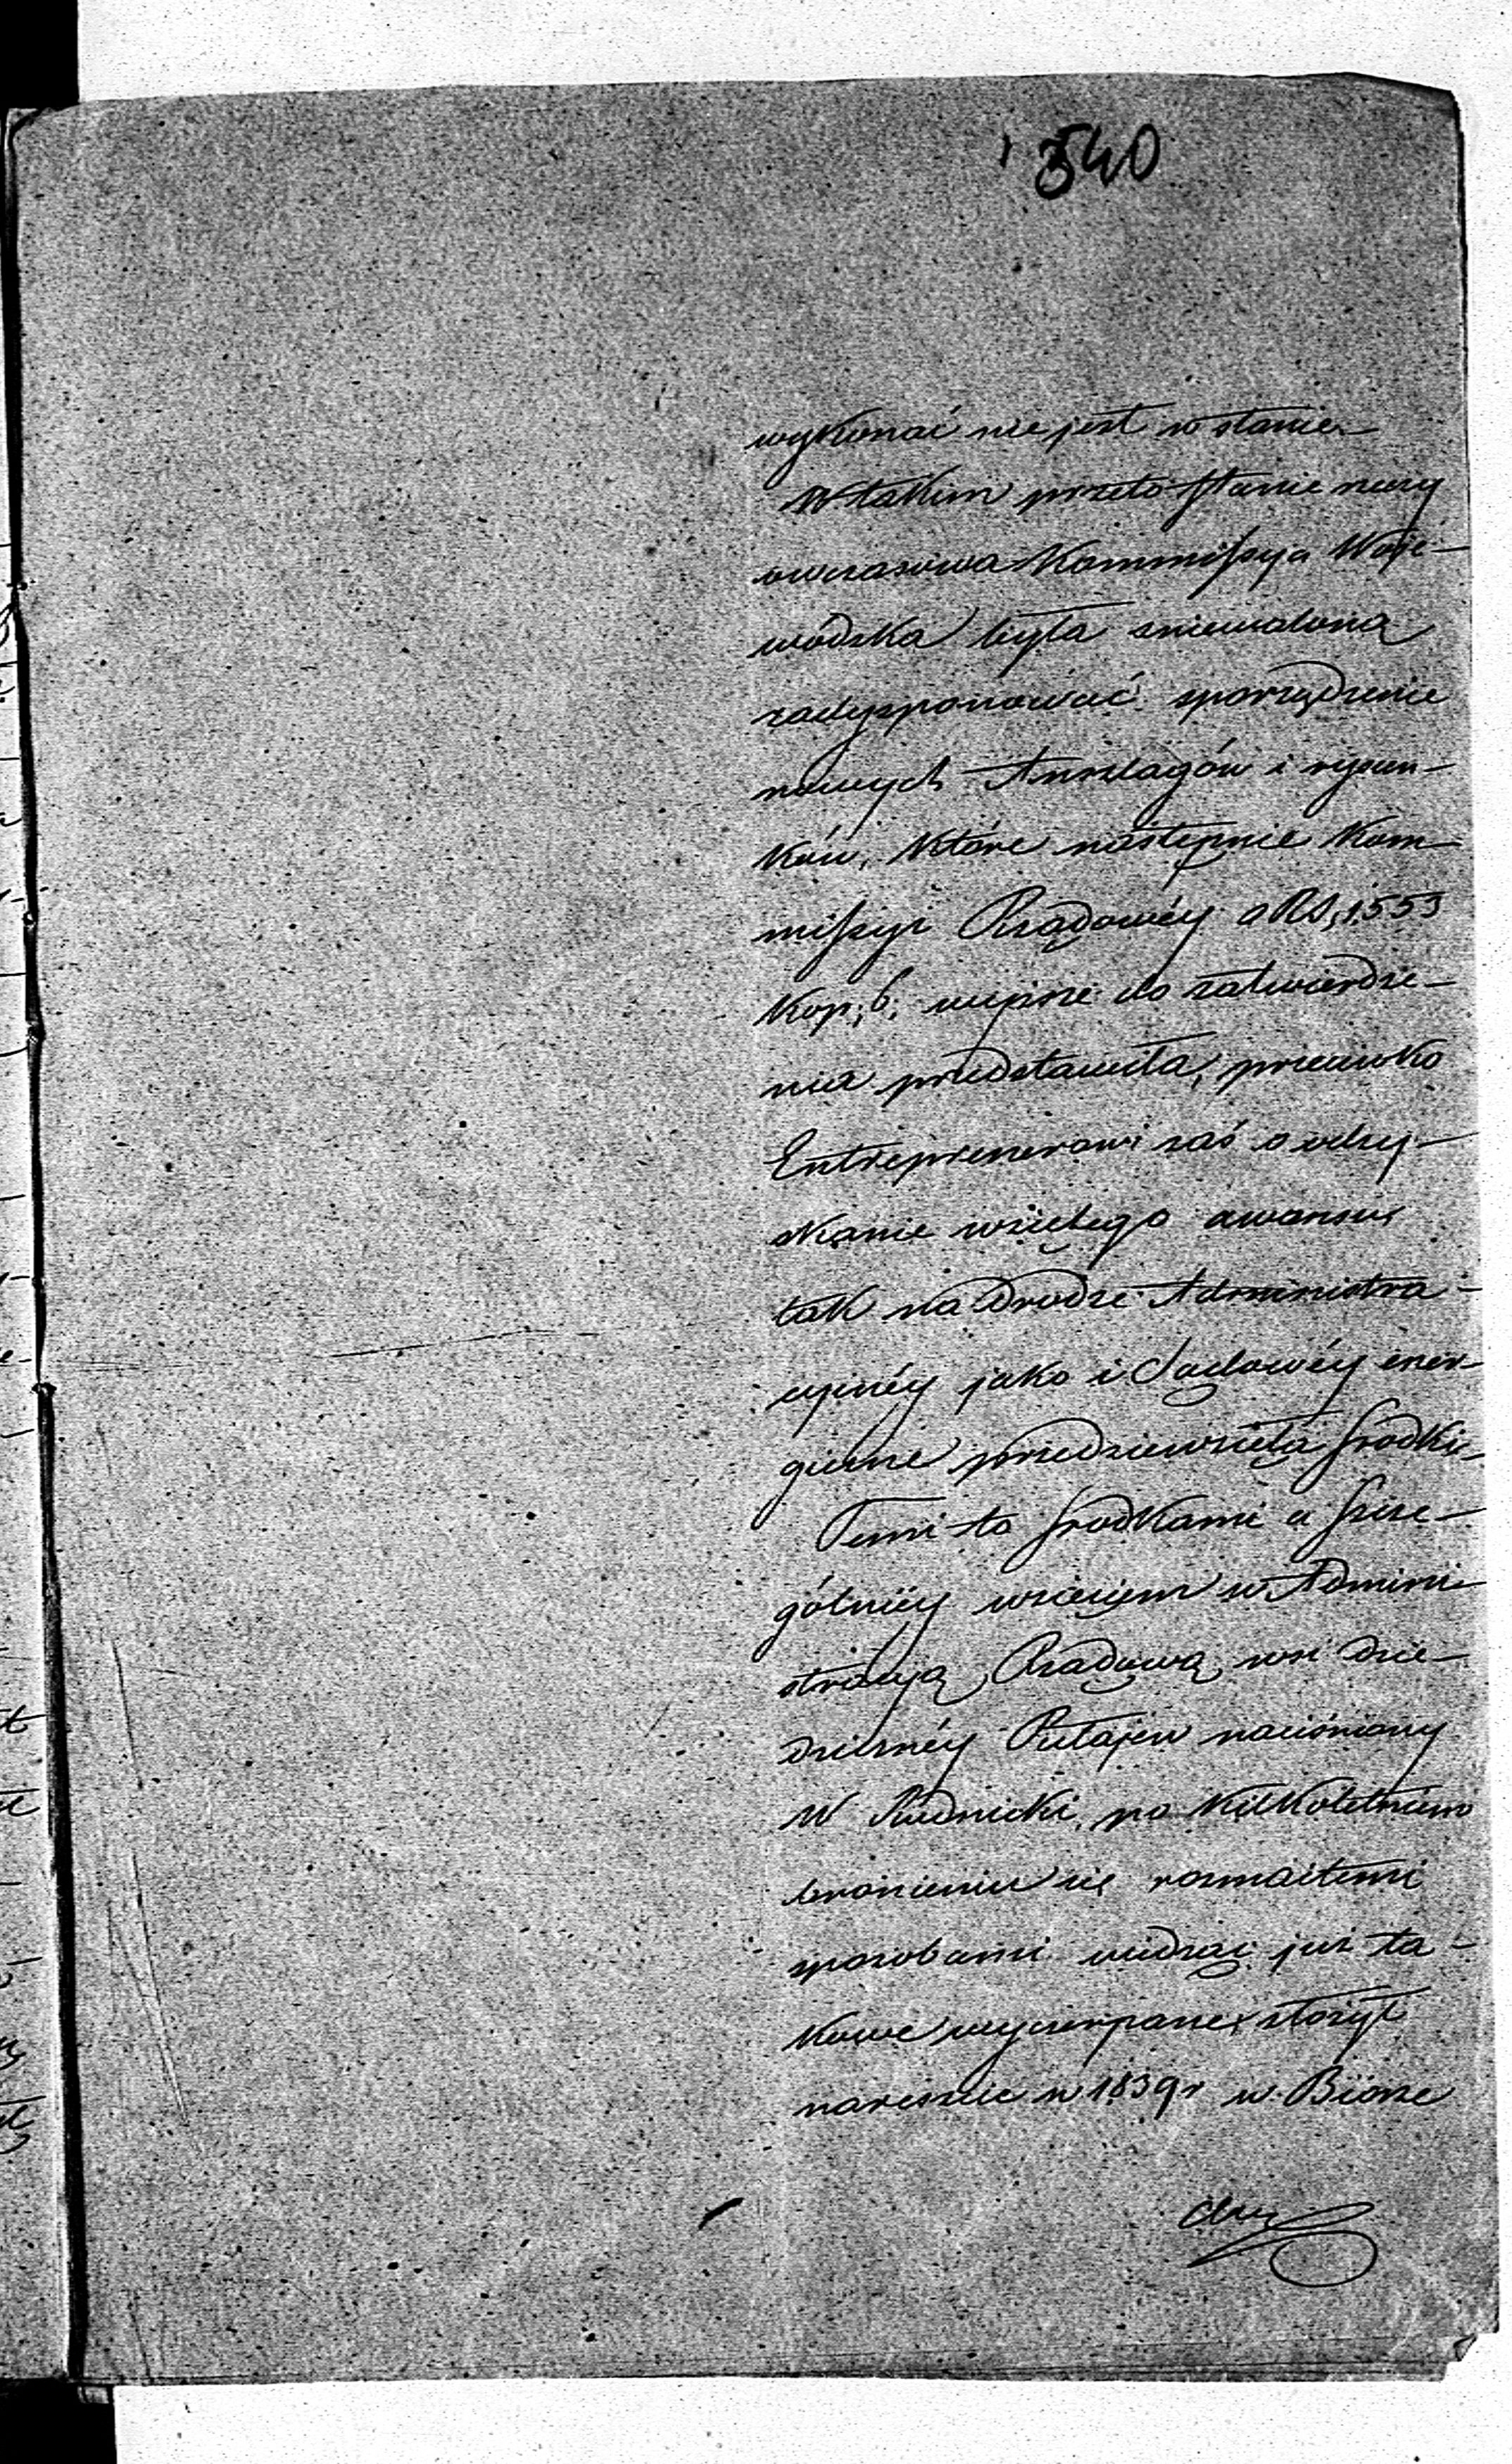 540
wykonać nie jest w stanie.
W takim przeto stanie rzeczy
owczasowa Kommissya Woje-
wodzka była zniewoloną
zadysponować sporządzenie
nowych Anszlagów i rysun-
ków, które następnie Kom-
missyi Rządowéy o RS, 1553
Kop: 6: wyżsże do zatwierdze-
nia przedstawiła, przeciwko
Entreprenerowi zaś o odzy-
skanie wziętego awansu,
tak na drodze Administra-
cyinéy jako i Sądowéy ener-
giczne przedziewzięła środki.
Temi to środkami a szcze-
gólniéy wzięciem w Admini-
stracyą Rządową wsi dzie-
dzicznéy Pułajew naciśniony
W Rudnicki, po kilkoletniem
bronieniu się rozmaitemi
sposobami widząc już ta-
kowe wyczerpane, złożył
nareszcie w 1839r w Biorze